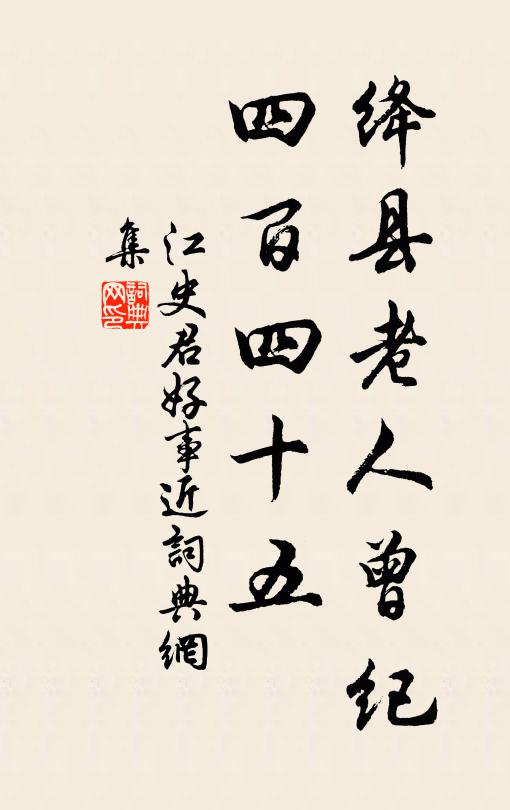 绛县老人曾纪
四百四十五
江史君好事近詞典網
集
詞典
网印